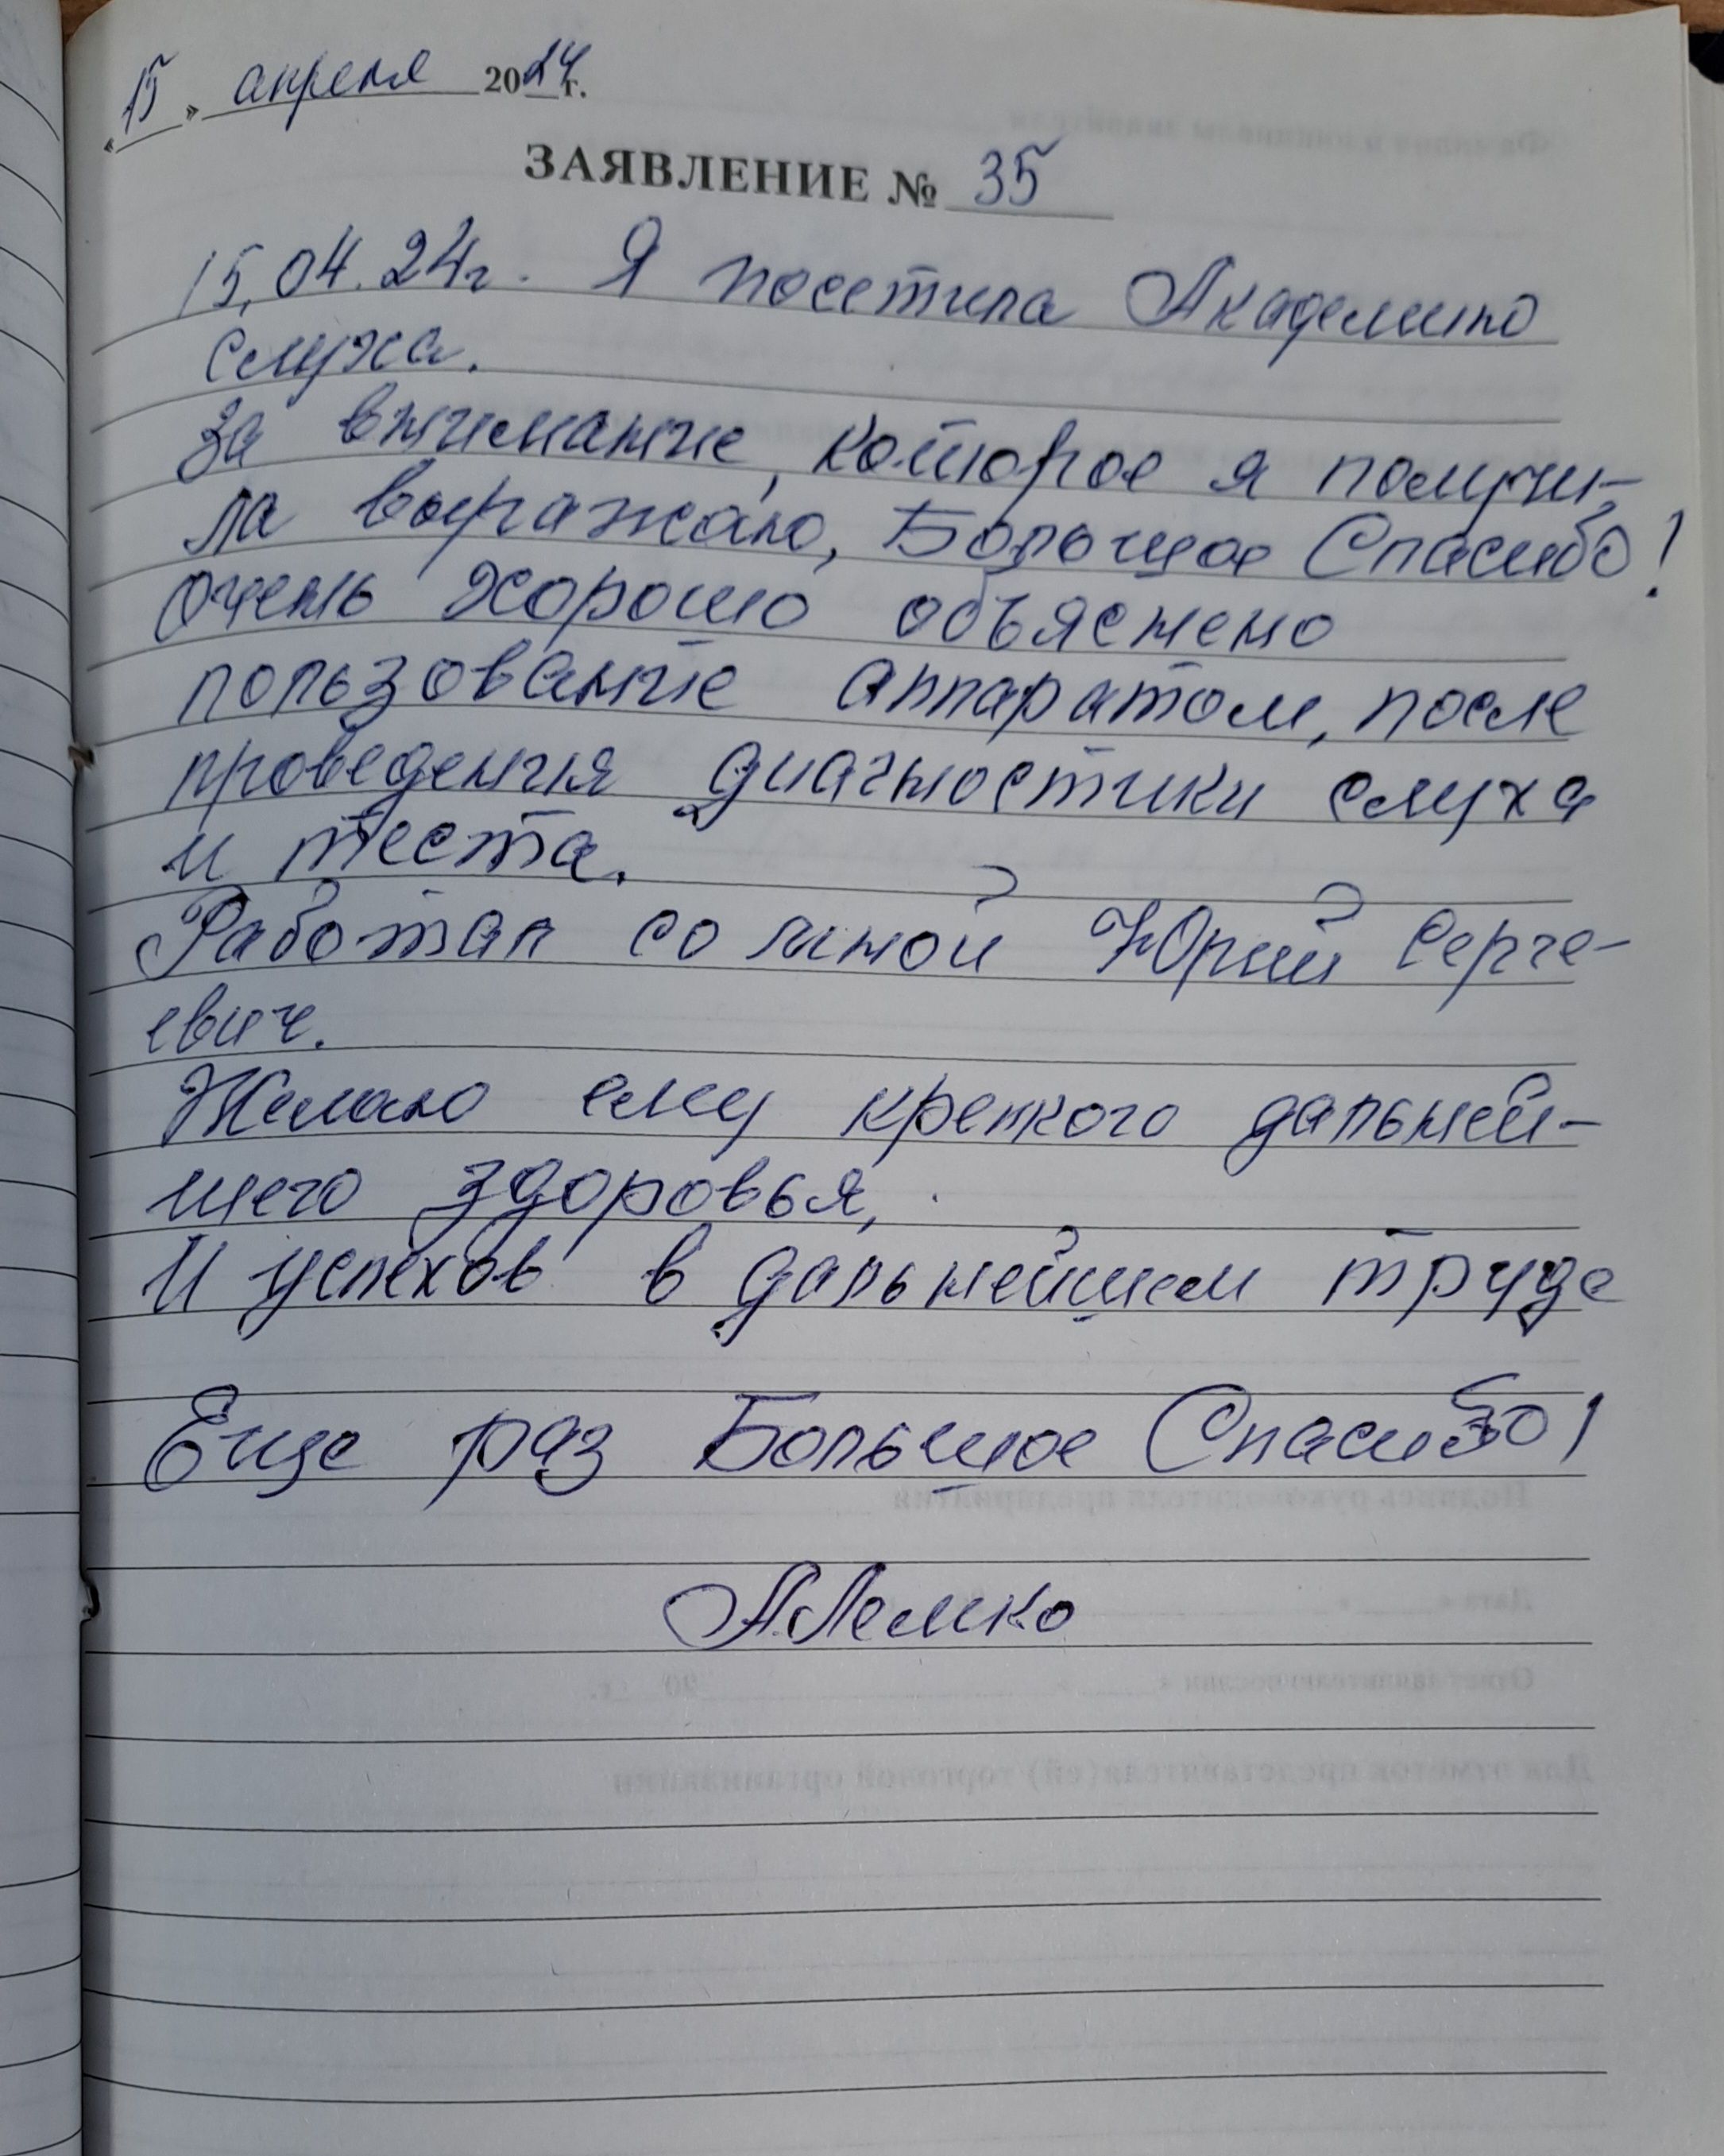 «15» апреля 2024 г.
ЗАЯВЛЕНИЕ № 35
15.04.24г. Я посетила Академию
слуха.
За внимание, которое я получи-
ла выражаю, Большое Спасибо!
Очень хорошо объяснено
пользование аппаратом, после
проведения диагностики слуха
и теста.
Работал со мной Юрий Серге-
евич.
Желаю ему крепкого дальней-
шего здоровья,
И успехов в дальнейшем труде
Еще раз Большое Спасибо!
А.Лемко